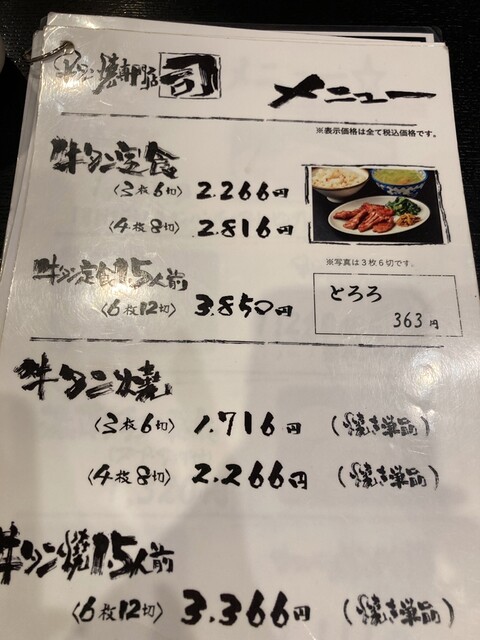 牛タン焼専門店 司
メニュー
※表示価格は全て税込価格です。
牛タン定食
〈3枚6切〉 2.266円
〈4枚8切〉 2.816円
※写真は3枚6切です。
牛タン定食1.5人前
〈6枚12切〉 3.850円
とろろ
363円
牛タン焼
〈3枚6切〉 1.716円 (焼き単品)
〈4枚8切〉 2.266円 (焼き単品)
牛タン焼1.5人前
〈6枚12切〉 3.366円 (焼き単品)